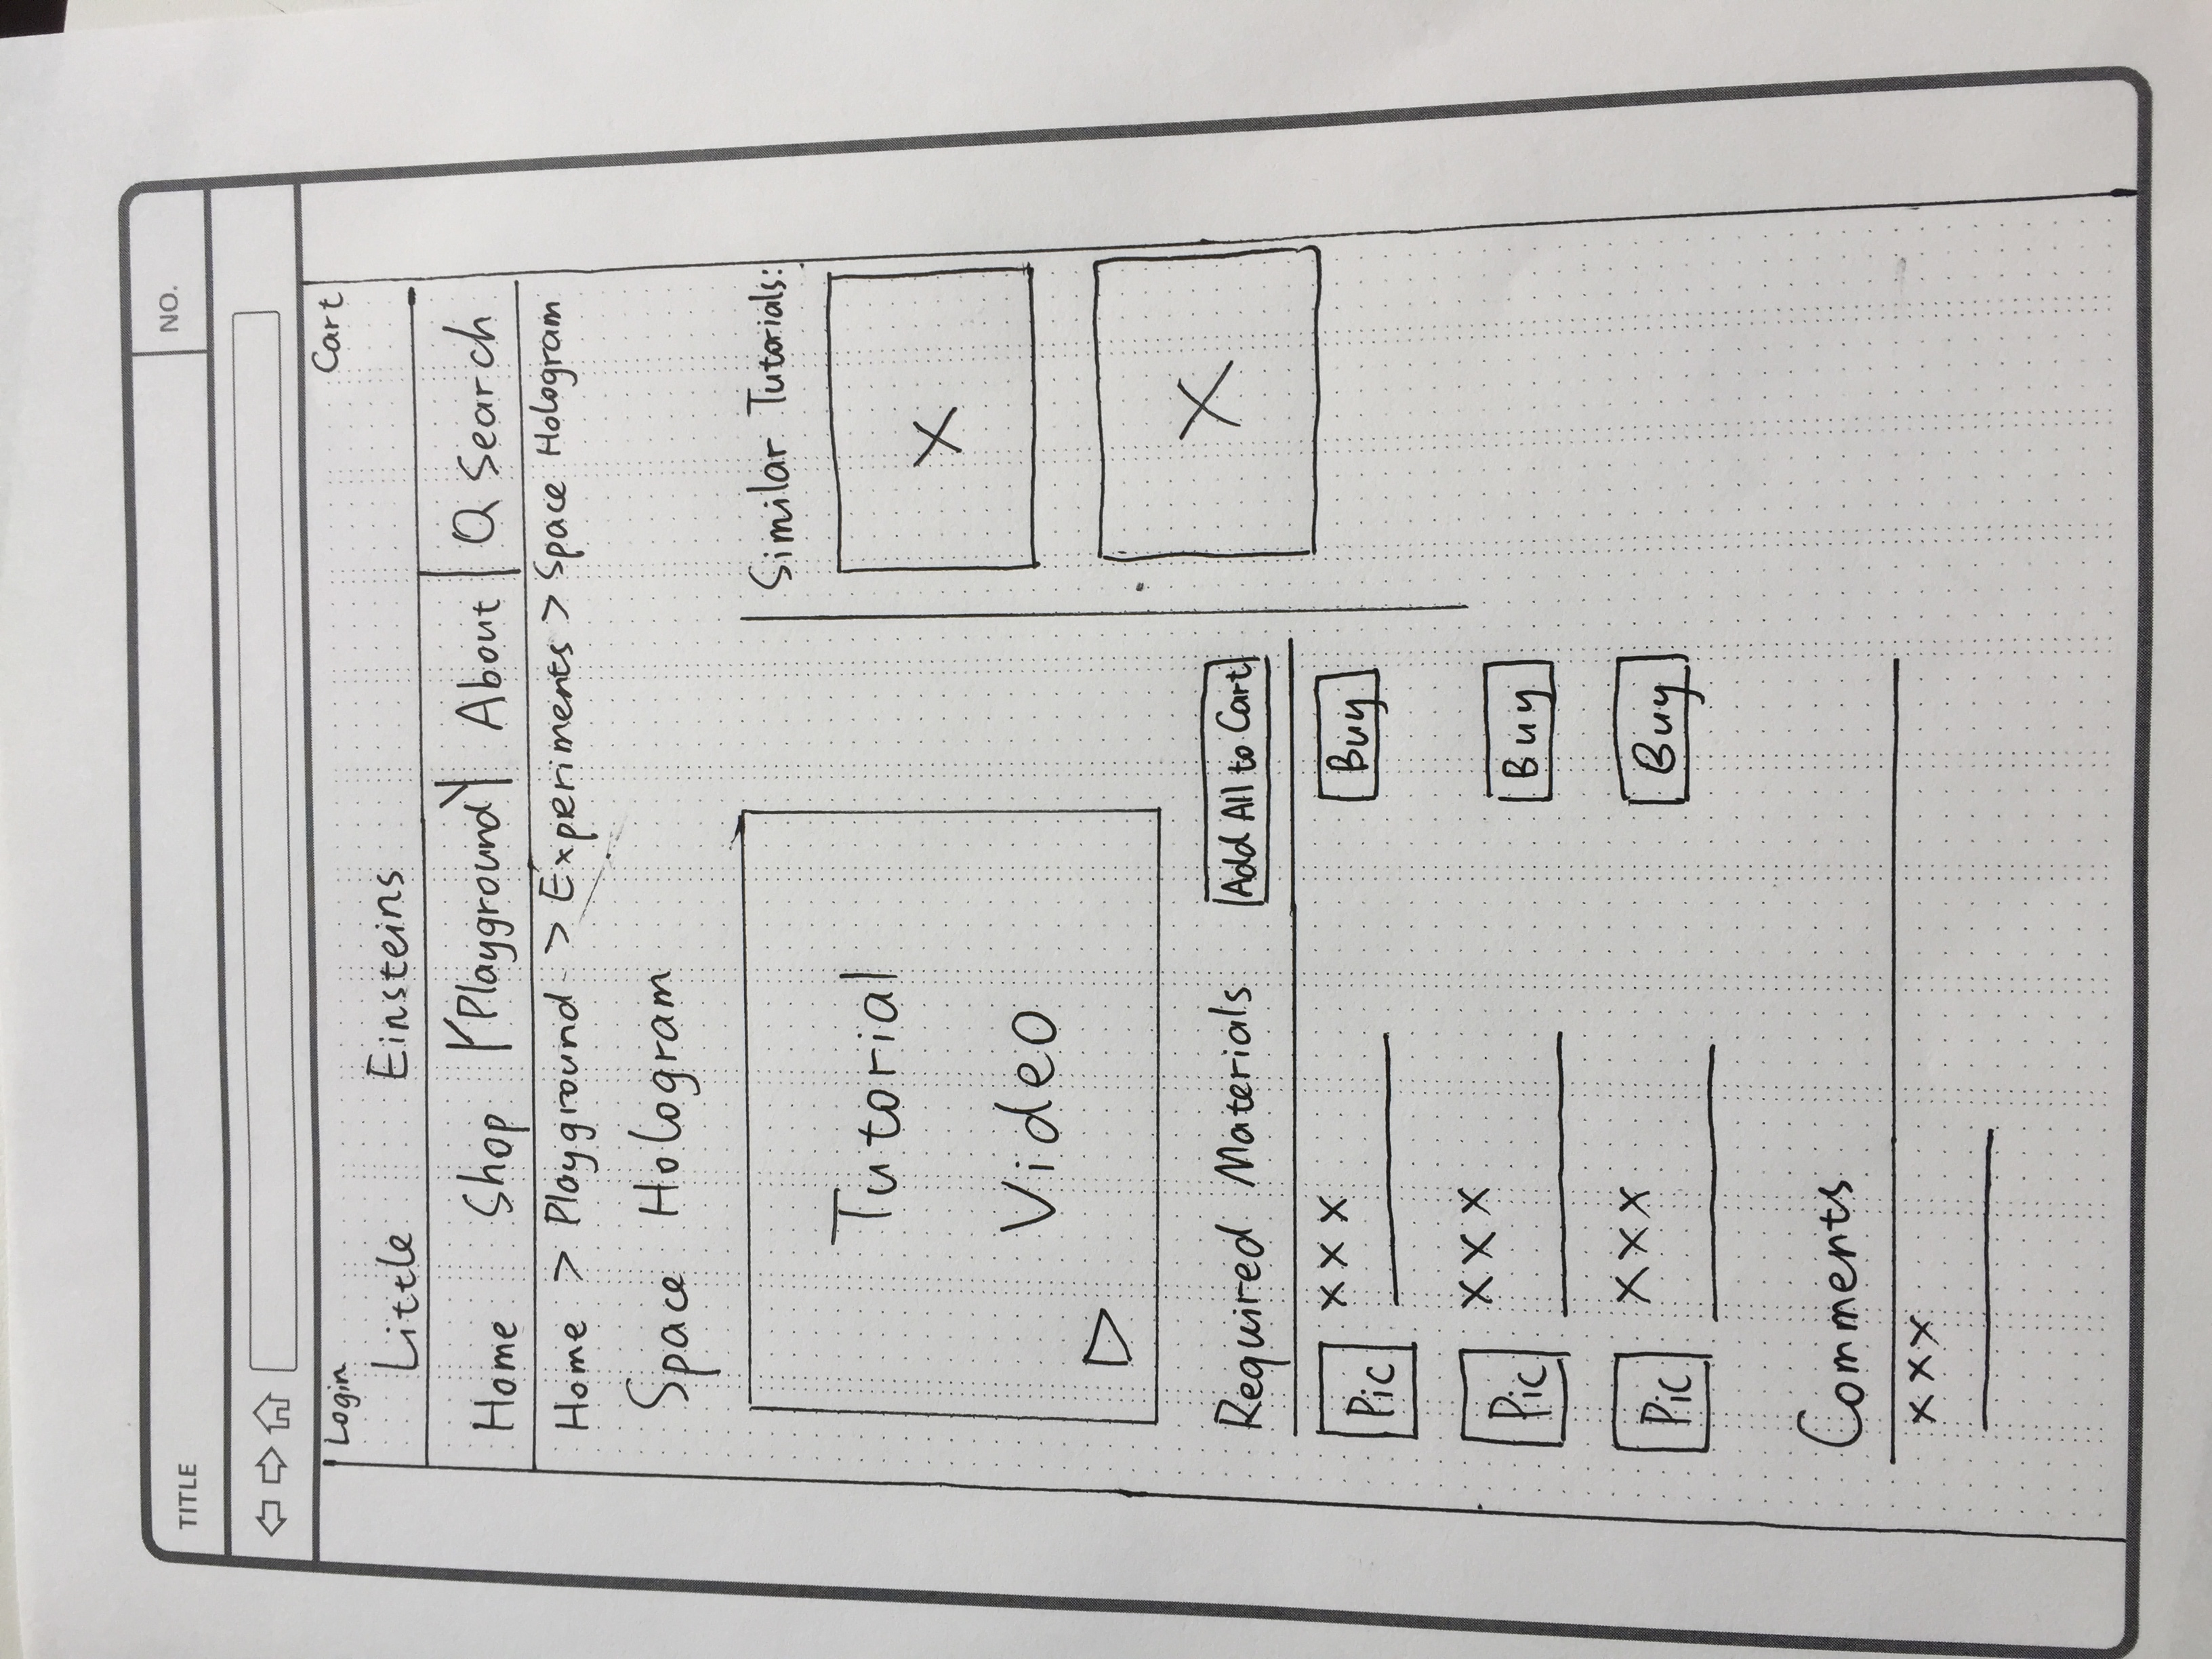 TITLE NO.
Login Cart
Little Einsteins
Home Shop Playground About Search
Home > Playground > Experiments > Space Hologram
Space Hologram
Similar Tutorials:
Tutorial
Video
Required Materials Add All to Cart
Pic XXX Buy
Pic XXX Buy
Pic XXX Buy
Comments
XXX